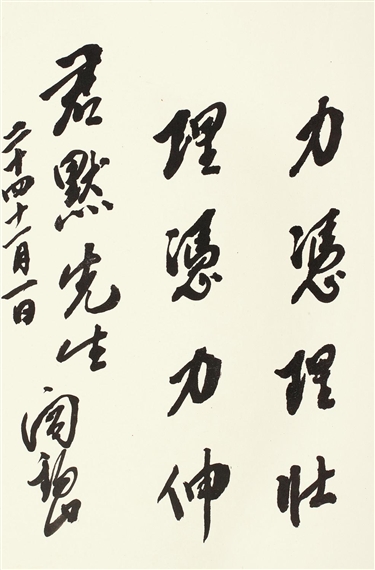 力憑理壯
理憑力伸
君默先生 閻錫山
二十四十一月一日